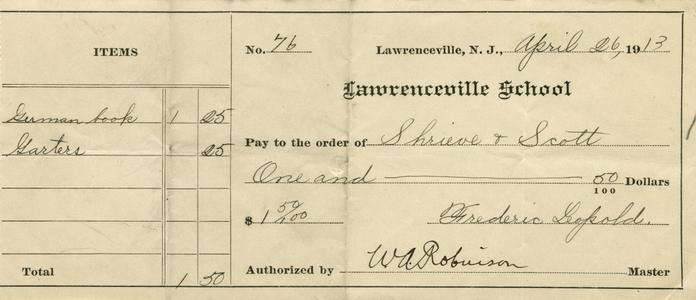 ITEMS
German book 1 25
Garters 25
Total 1 50
No. 76 Lawrenceville, N. J., April 26, 1913
Lawrenceville School
Pay to the order of Shrieve & Scott
One and 50/100 Dollars
$ 1 50/100 Frederic Leopold.
Authorized by W.A. Robinson Master